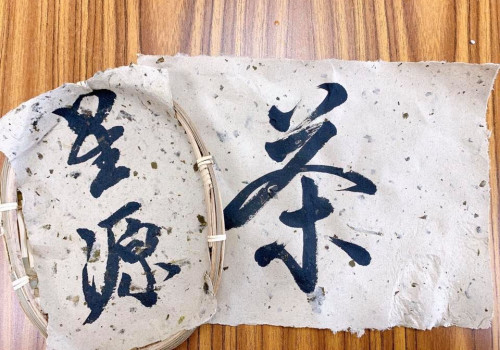 茶
星源